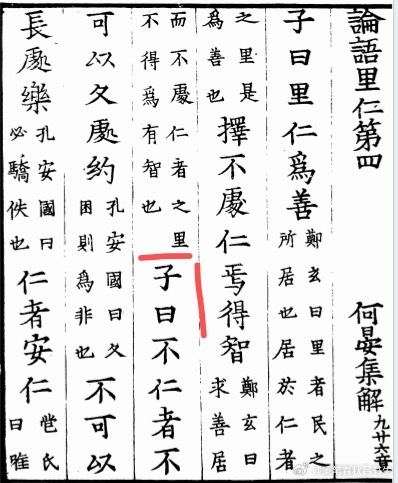 論語里仁第四 何晏集解 凢廿六章
子曰里仁爲善 鄭玄曰里者民之 所居也居於仁者
之里是 爲善也 擇不處仁焉得智 鄭玄曰 求善居
而不處仁者之里 不得爲有智也 子曰不仁者不
可以久處約 孔安國曰久 困則爲非也 不可以
長處樂 孔安國曰 必驕佚也 仁者安仁 苞氏 曰唯